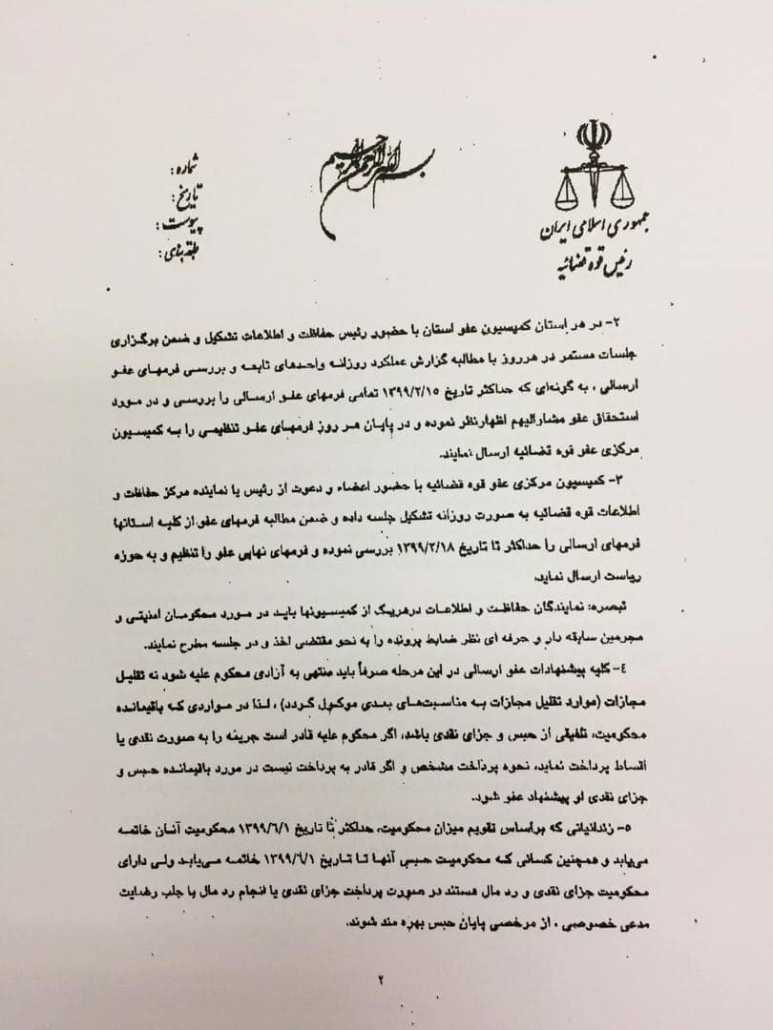 بسم الله الرحمن الرحیم
جمهوری اسلامی ایران
رئیس قوه قضائیه
شماره :
تاریخ :
پیوست :
طبقه بندی :
۲- در هر استان کمیسیون عفو استان با حضور رئیس حفاظت و اطلاعات تشکیل و ضمن برگزاری
جلسات مستمر در هرروز با مطالبه گزارش عملکرد روزانه واحدهای تابعه و بررسی فرمهای عفو
ارسالی ، به گونه‌ای که حداکثر تاریخ ۱۳۹۹/۲/۱۵ تمامی فرمهای عفو ارسالی را بررسی و در مورد
استحقاق عفو مشارالیهم اظهارنظر نموده و در پایان هر روز فرمهای عفو تنظیمی را به کمیسیون
مرکزی عفو قوه قضائیه ارسال نمایند.
۳- کمیسیون مرکزی عفو قوه قضائیه با حضور اعضاء و دعوت از رئیس یا نماینده مرکز حفاظت و
اطلاعات قوه قضائیه به صورت روزانه تشکیل جلسه داده و ضمن مطالبه فرمهای عفو از کلیه استانها
فرمهای ارسالی را حداکثر تا تاریخ ۱۳۹۹/۲/۱۸ بررسی نموده و فرمهای نهایی عفو را تنظیم و به حوزه
ریاست ارسال نماید.
تبصره: نمایندگان حفاظت و اطلاعات درهریک از کمیسیونها باید در مورد محکومان امنیتی و
مجرمین سابقه دار و حرفه ای نظر ضابط پرونده را به نحو مقتضی اخذ و در جلسه مطرح نمایند.
۴- کلیه پیشنهادات عفو ارسالی در این مرحله صرفاً باید منتهی به آزادی محکوم علیه شود نه تقلیل
مجازات (موارد تقلیل مجازات به مناسبت‌های بعدی موکول گردد) ، لذا در مواردی که باقیمانده
محکومیت، تلفیقی از حبس و جزای نقدی باشد، اگر محکوم علیه قادر است جریمه را به صورت نقدی یا
اقساط پرداخت نماید، نحوه پرداخت مشخص و اگر قادر به پرداخت نیست در مورد باقیمانده حبس و
جزای نقدی او پیشنهاد عفو شود.
۵- زندانیانی که براساس تقویم میزان محکومیت، حداکثر تا تاریخ ۱۳۹۹/۶/۱ محکومیت آنان خاتمه
می‌یابد و همچنین کسانی که محکومیت حبس آنها تا تاریخ ۱۳۹۹/۶/۱ خاتمه می‌یابد ولی دارای
محکومیت جزای نقدی و رد مال هستند در صورت پرداخت جزای نقدی یا انجام رد مال یا جلب رضایت
مدعی خصوصی ، از مرخصی پایان حبس بهره مند شوند.
۲